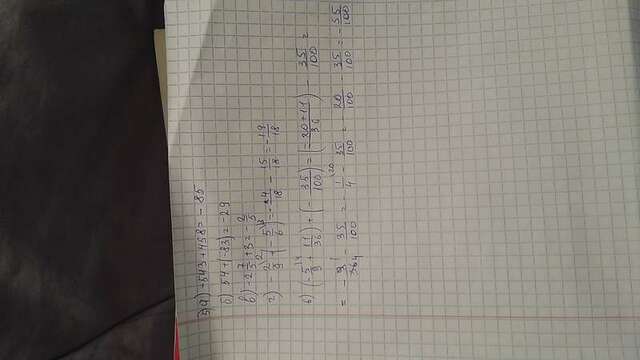 5) а) -543+458=-85
б) 54+(-83)=-29
в) -2 7/5+3=-2/5
г) -2/9 \2 + (-5/6 \3)=-24/18-15/18=-19/18
б) (-5/9 \4 + 11/36) + (-35/100) = (-20+11/36) - 35/100 =
= -9/36 1 4 - 35/100 = -1/4 \20 - 35/100 = -20/100 - 35/100 = -55/100